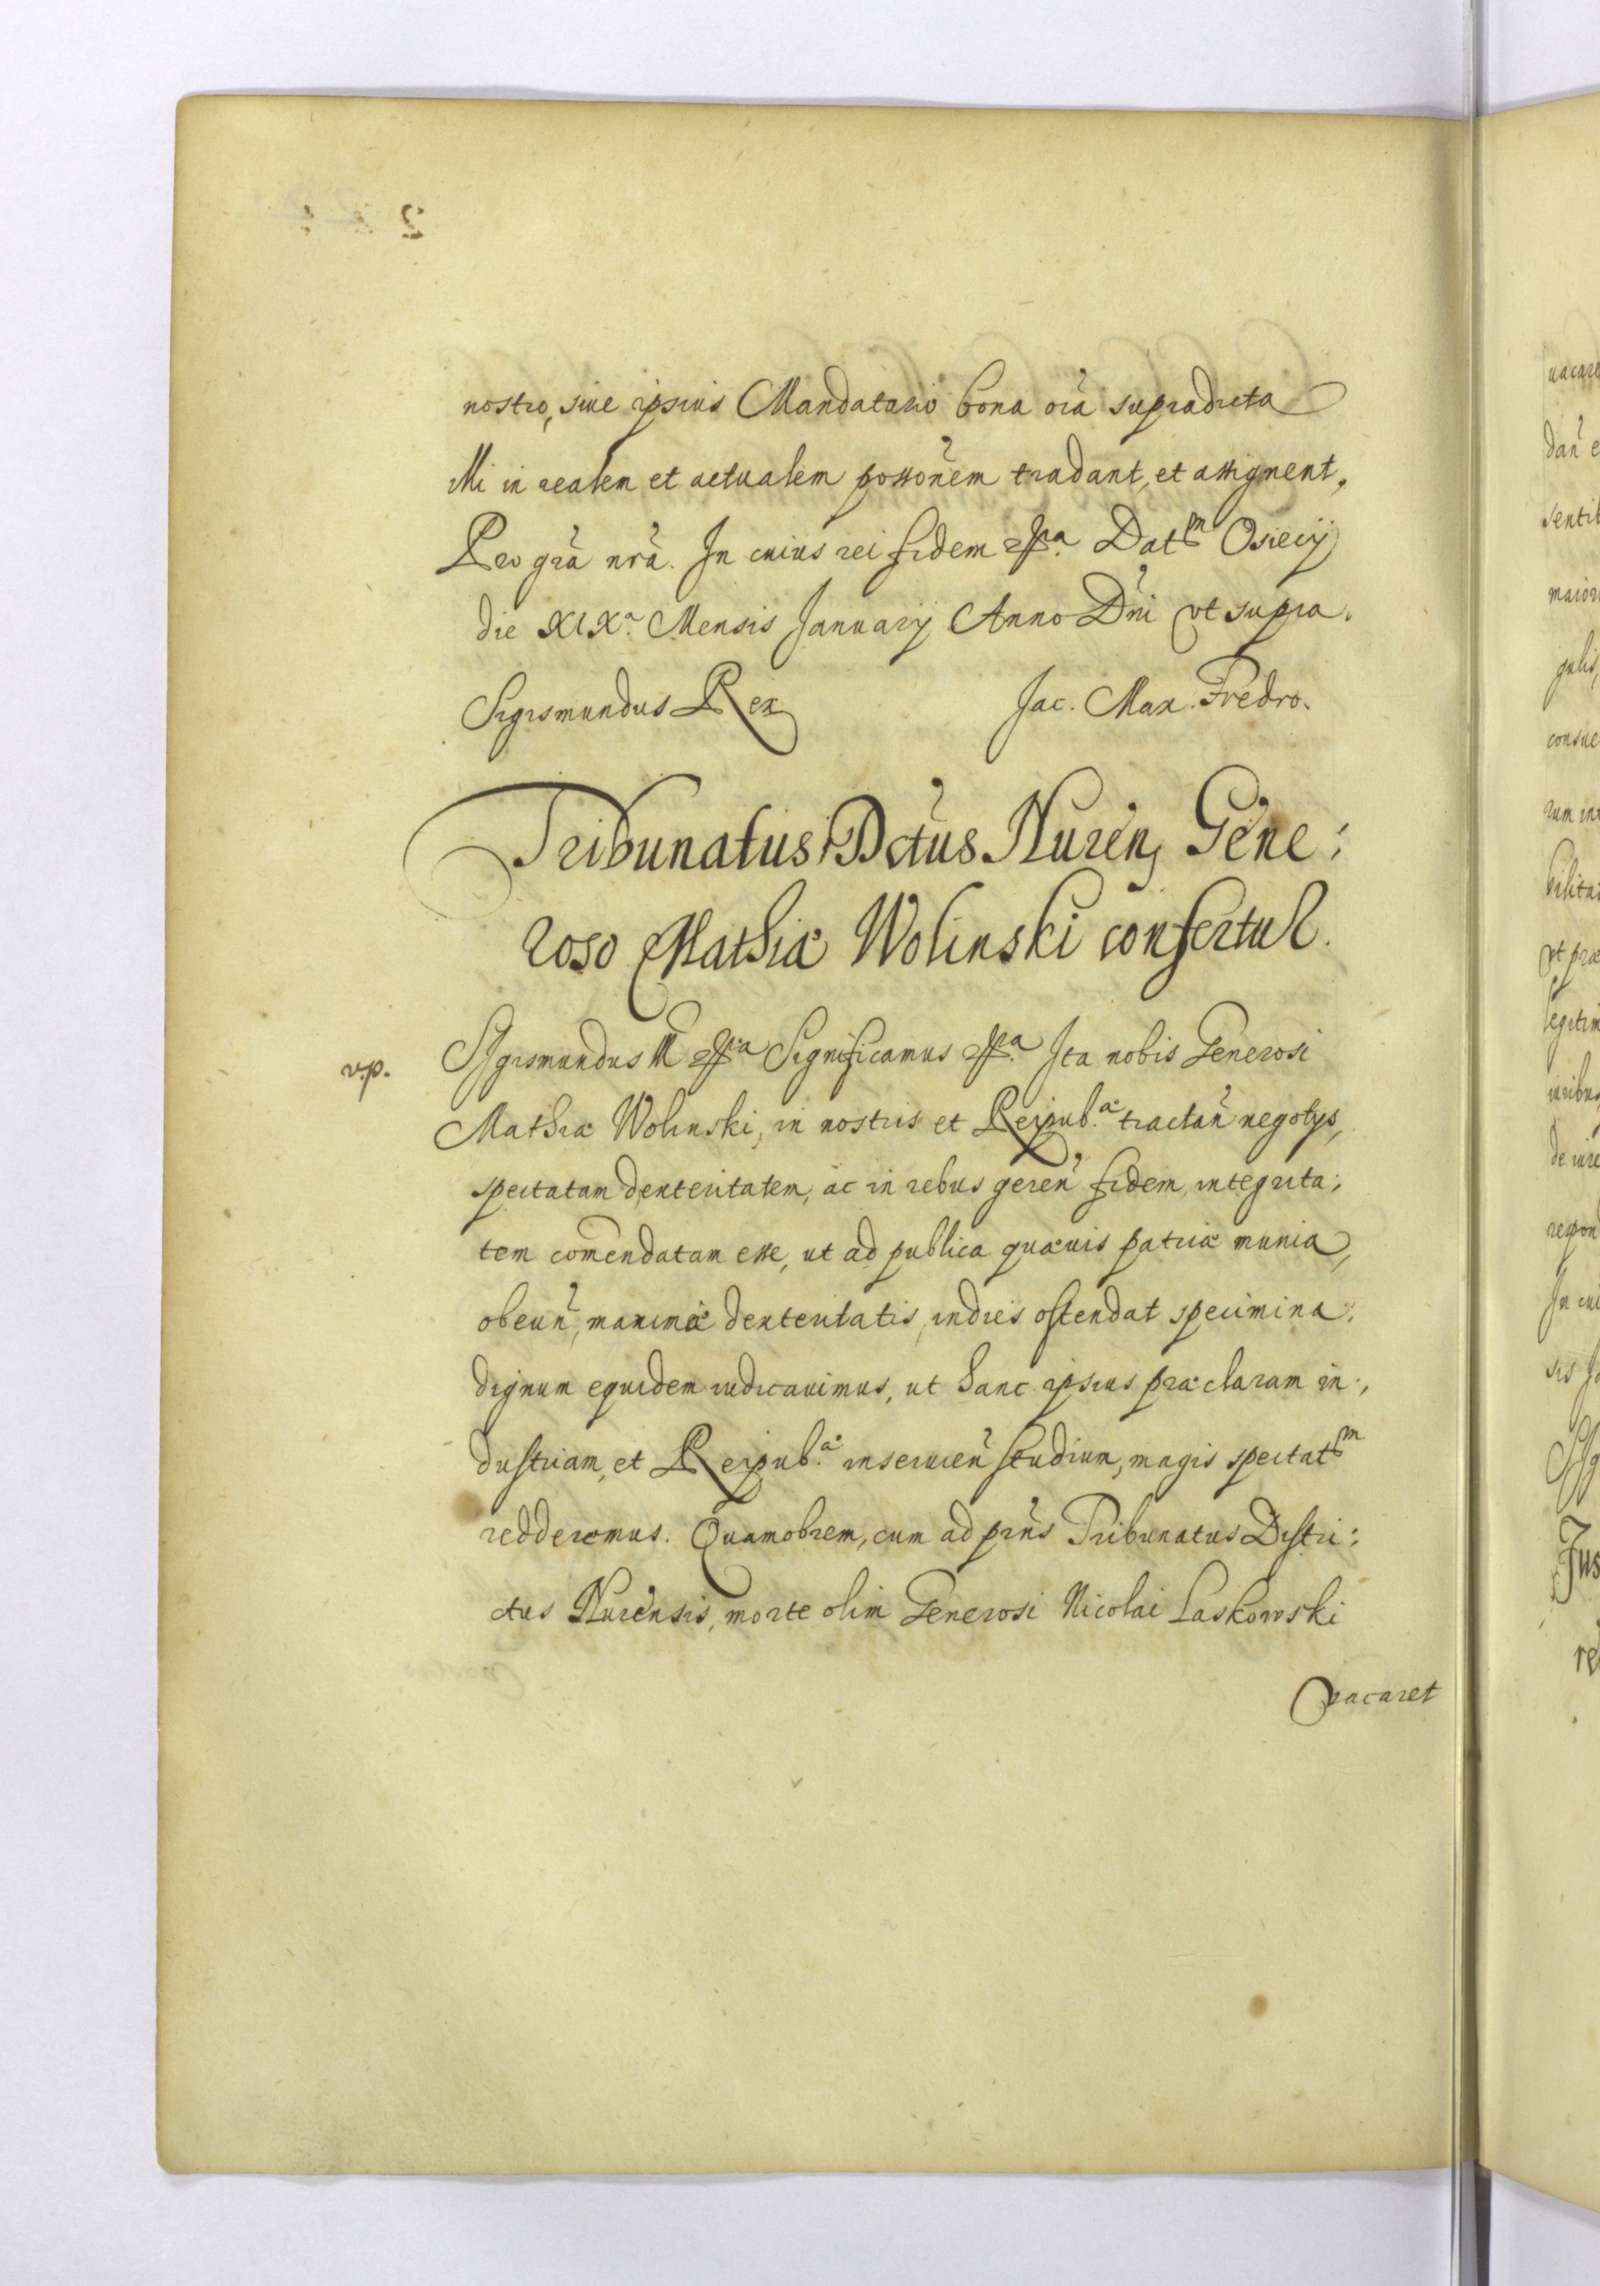 nostro, siue ipsius Mandatario bona oĩa supradicta
illi in realem et actualem possoñem tradant, et assignent,
Pro gr̃a nr̃a. In cuius rei fidem ꝑꝑa Datum Osiecij
die XIXa. Mensis Januarij Anno Dñi vt supra.
Sigismundus Rex
Jac. Max. Fredro.
Tribunatus Dctus Nuren, Gene:
roso Mathiæ Wolinski confertur.
v.p.
Sigismundus III Significamus Ita nobis Generosi
Mathiæ Wolinski, in nostris et Reipub.æ tractañ negotys,
spectatam dexteritatem, ac in rebus gereñ fidem, integrita:
tem comendatam esse, ut ad publica quæuis patriæ munia,
obeuñ, maximæ dexteritatis, indies ostendat specimina.
dignum equidem iudicauimus, ut hanc ipsius præclaram in:
dustriam, et Reipub.æ inseruieñ studium, magis spectatum
redderemus. Quamobrem, cum ad prñs Tribunatus Distri:
ctus Nurensis, morte olim Generosi Nicolai Laskowski
vacaret